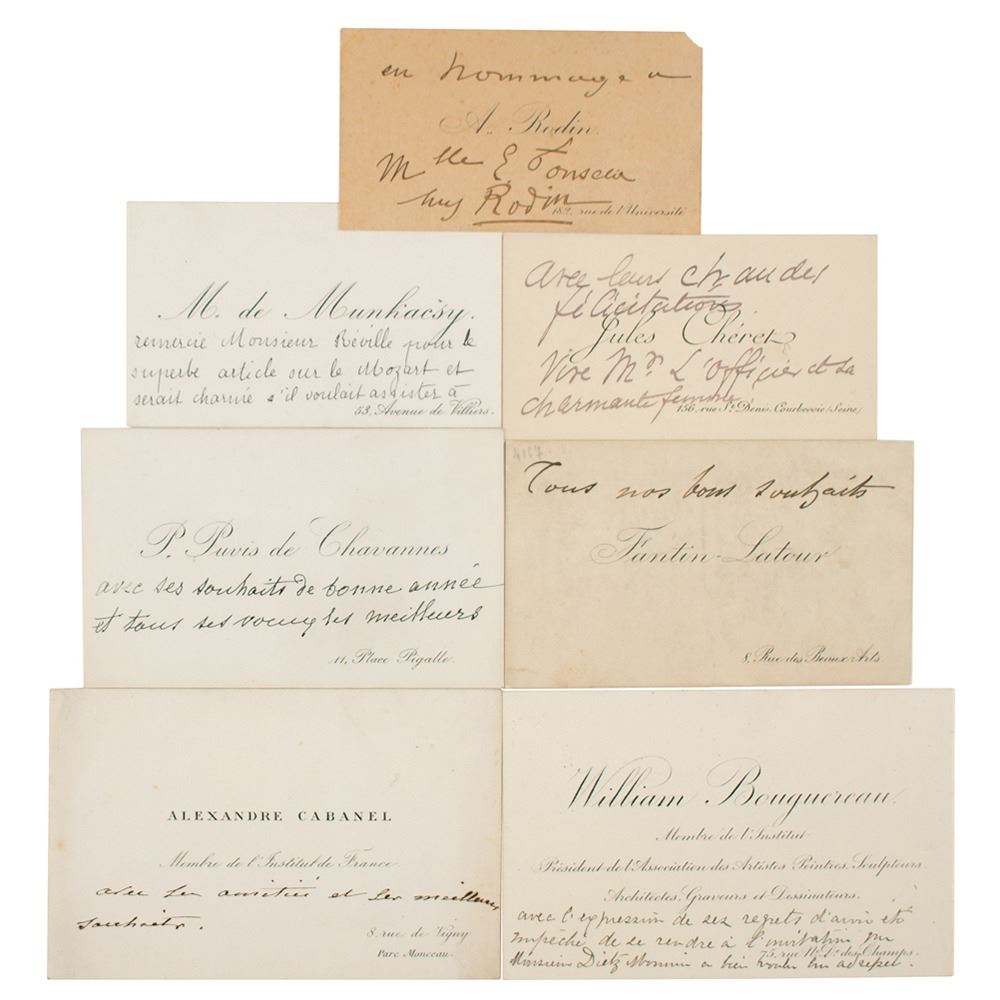 en hommage a
A. Rodin.
Mlle E Fonseca
Rodin
182, rue de l'Université
M. de Munkácsy.
remercie Monsieur Réville pour le
superbe article sur le Mozart et
serait charmé s'il voulait assister à
53, Avenue de Villiers.
avec leurs chaudes
félicitations
Jules Chéret
Vive Mr. L'Officier et sa
charmante femme
156, rue St. Denis. Courbevoie (Seine)
P. Puvis de Chavannes
avec ses souhaits de bonne année
et tous ses voeux les meilleurs
11, Place Pigalle.
4127
Tous nos bons souhaits
Fantin-Latour
8, Rue des Beaux-Arts.
ALEXANDRE CABANEL
Membre de l'Institut de France
avec ses amitiés et ses meilleurs
souhaits.
8, rue de Vigny
Parc Monceau.
William Bouguereau.
Membre de l'Institut
Président de l'Association des Artistes Peintres, Sculpteurs,
Architectes, Graveurs et Dessinateurs.
avec l'expression de ses regrets d'avoir été
empêché de se rendre à l'invitation que
75, rue N. D. des Champs.
Monsieur Dietz Monnin a bien voulu lui adresser.